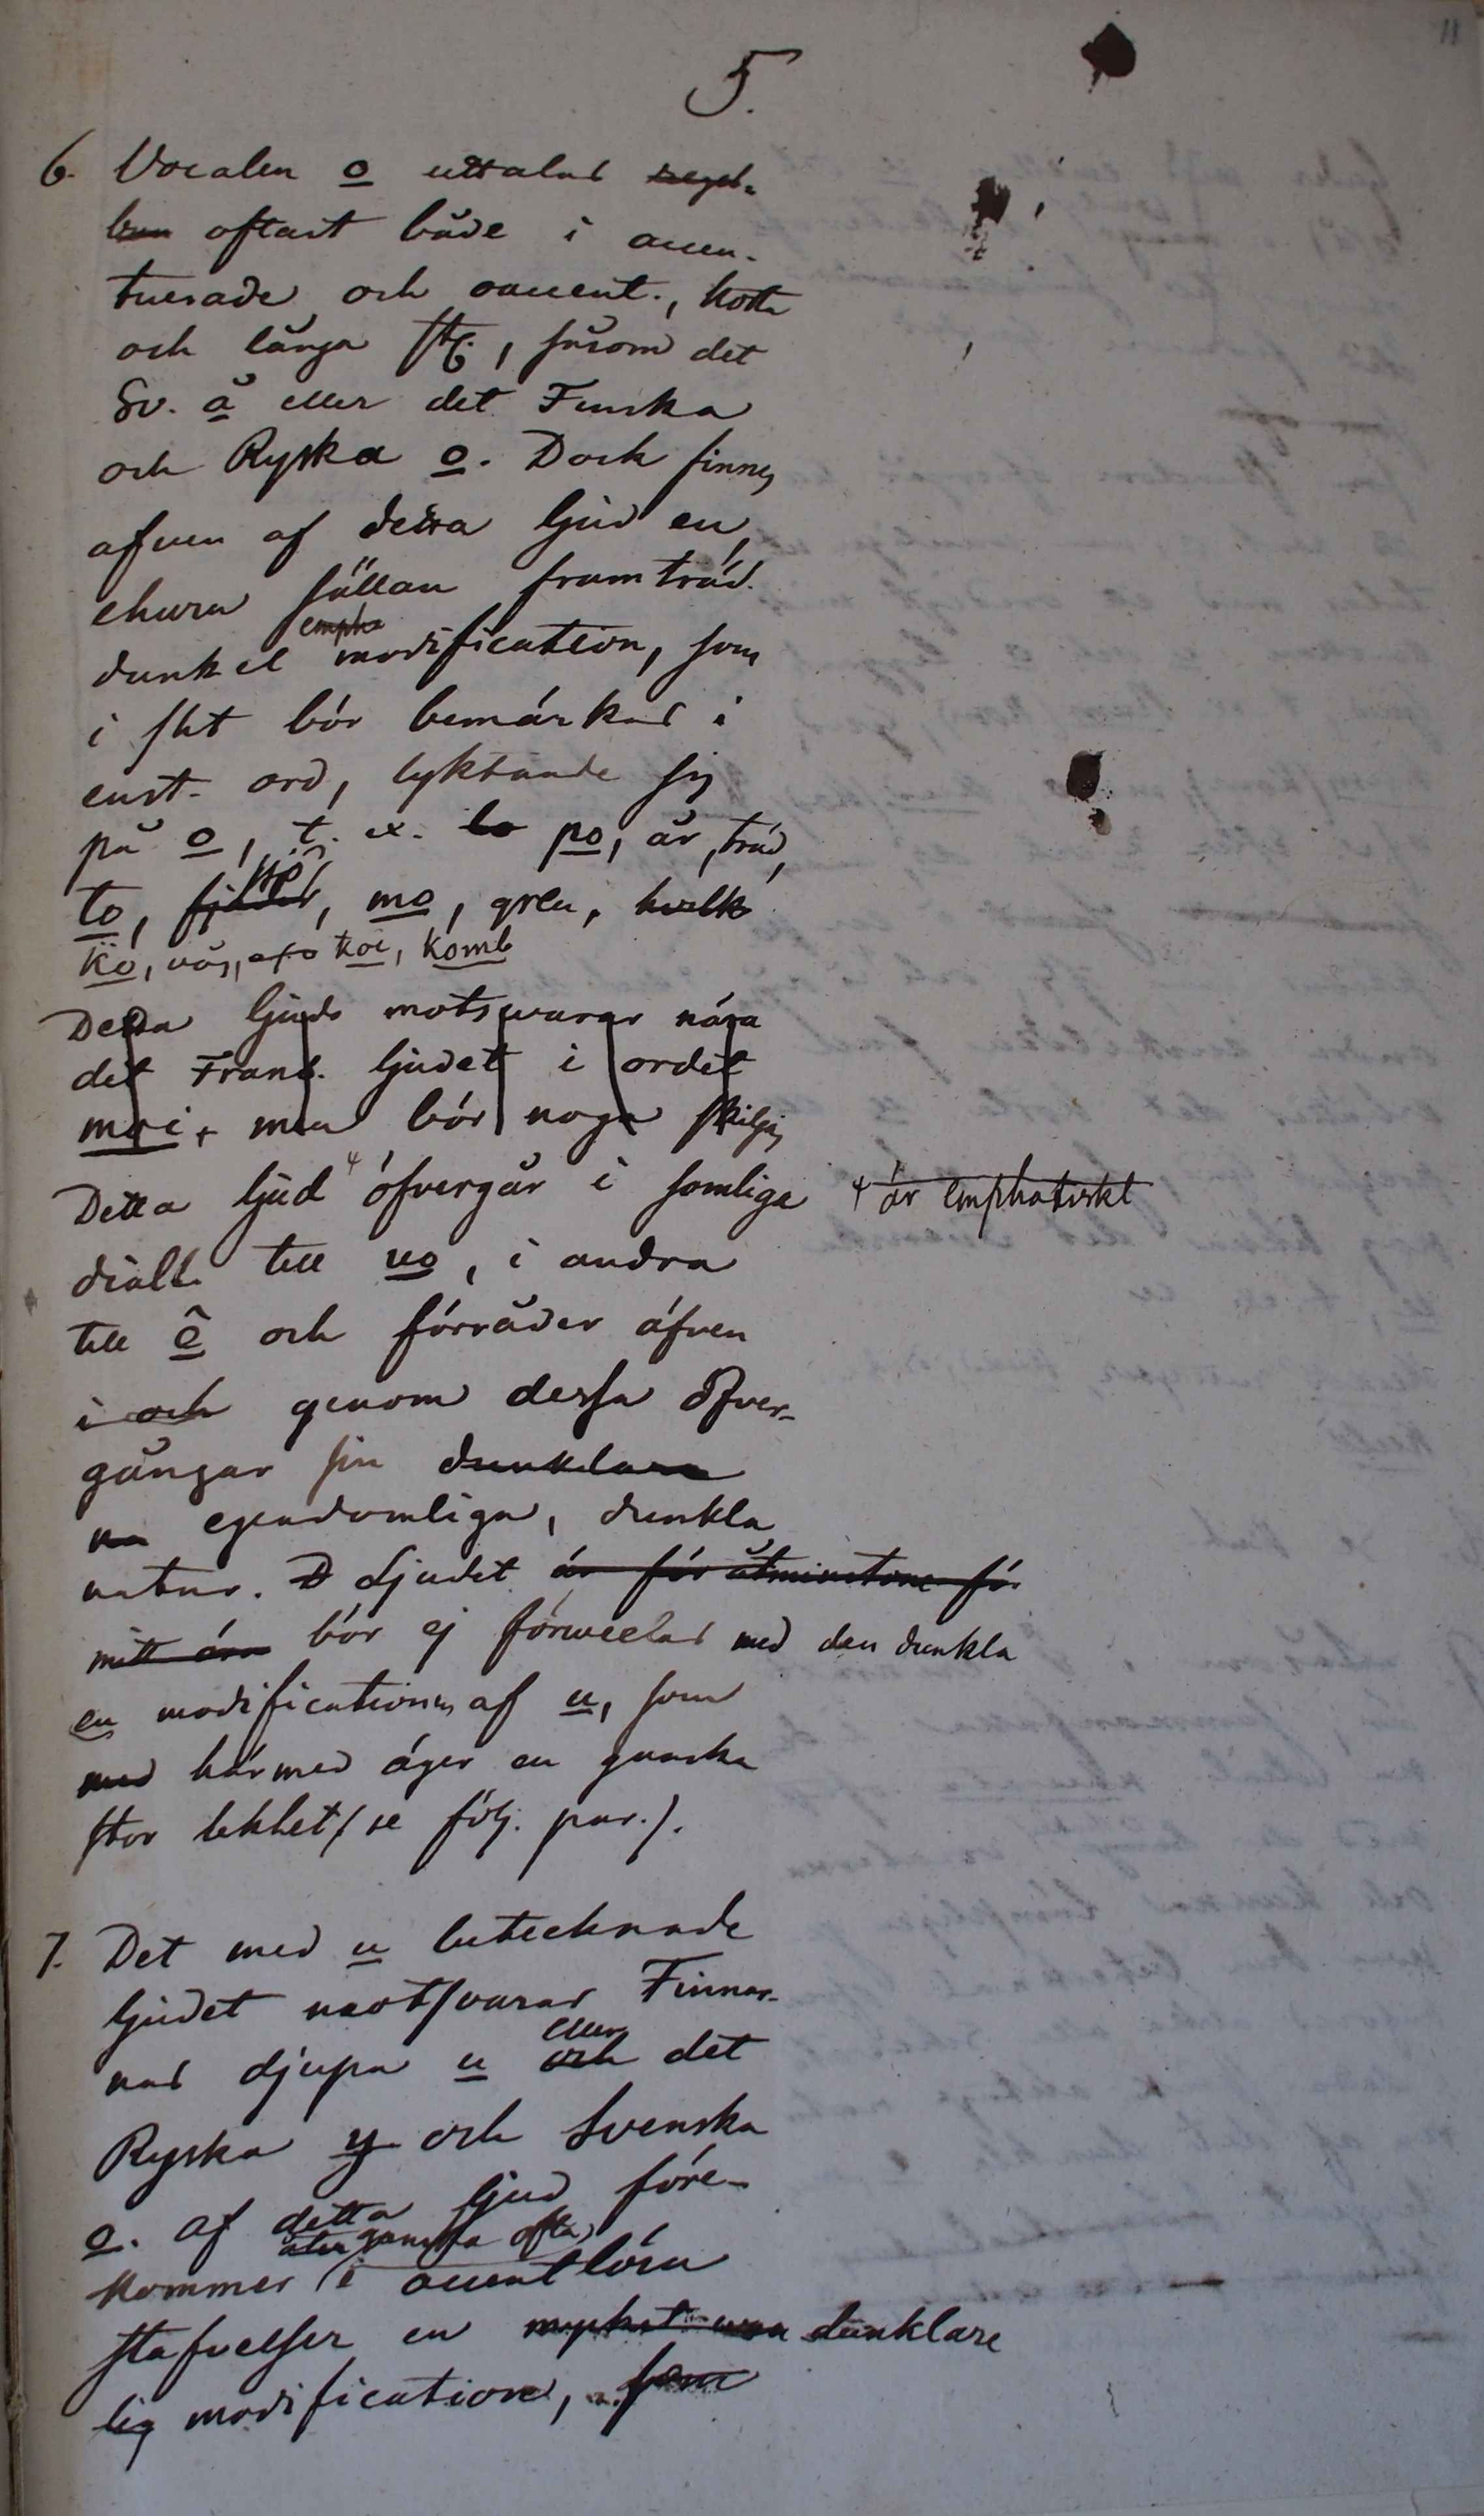 11
5.
6. Vocalen o uttalas regel-
bun oftast både i accen-
tuerade och oaccent., korta
och långa st., såsom det
Sv. å eller det Finska
och Ryska o. Dock finnes
afven af detta ljud en,
ehuru sällan framträd.
empha
dunkel modification, som
i sht bör bemärkas i
enst. ord, lyktande sig
på o, t. ex. lo po, år, träd,
to, sjö, mo, gren, hvilk
ko, våg, koi, komb
Detta ljud motsvarar nära
det Frans. ljudet i ordet
moi, men bör noga skiljas
Detta ljud + öfvergår i somliga
+ är emphatiskt
diall. till uo, i andra
till ê och förråder äfven
i och genom dessa öfver-
gångar sin dunklare
na egendomliga, dunkla
natur. D Ljudet är för åtminstone för
mitt öra bör ej förvexlas med den dunkla
en modificationen af u, som
med härmed äger en ganska
stor likhet (se följ. par.).
7. Det med u betecknade
ljudet motsvarar Finnar-
eller
nas djupa u och det
Ryska y och Svenska
o. Af detta ljud före-
åter ganska ofta
kommer i accentlösa
stafvelser en mycket dunklare
lig modification, som